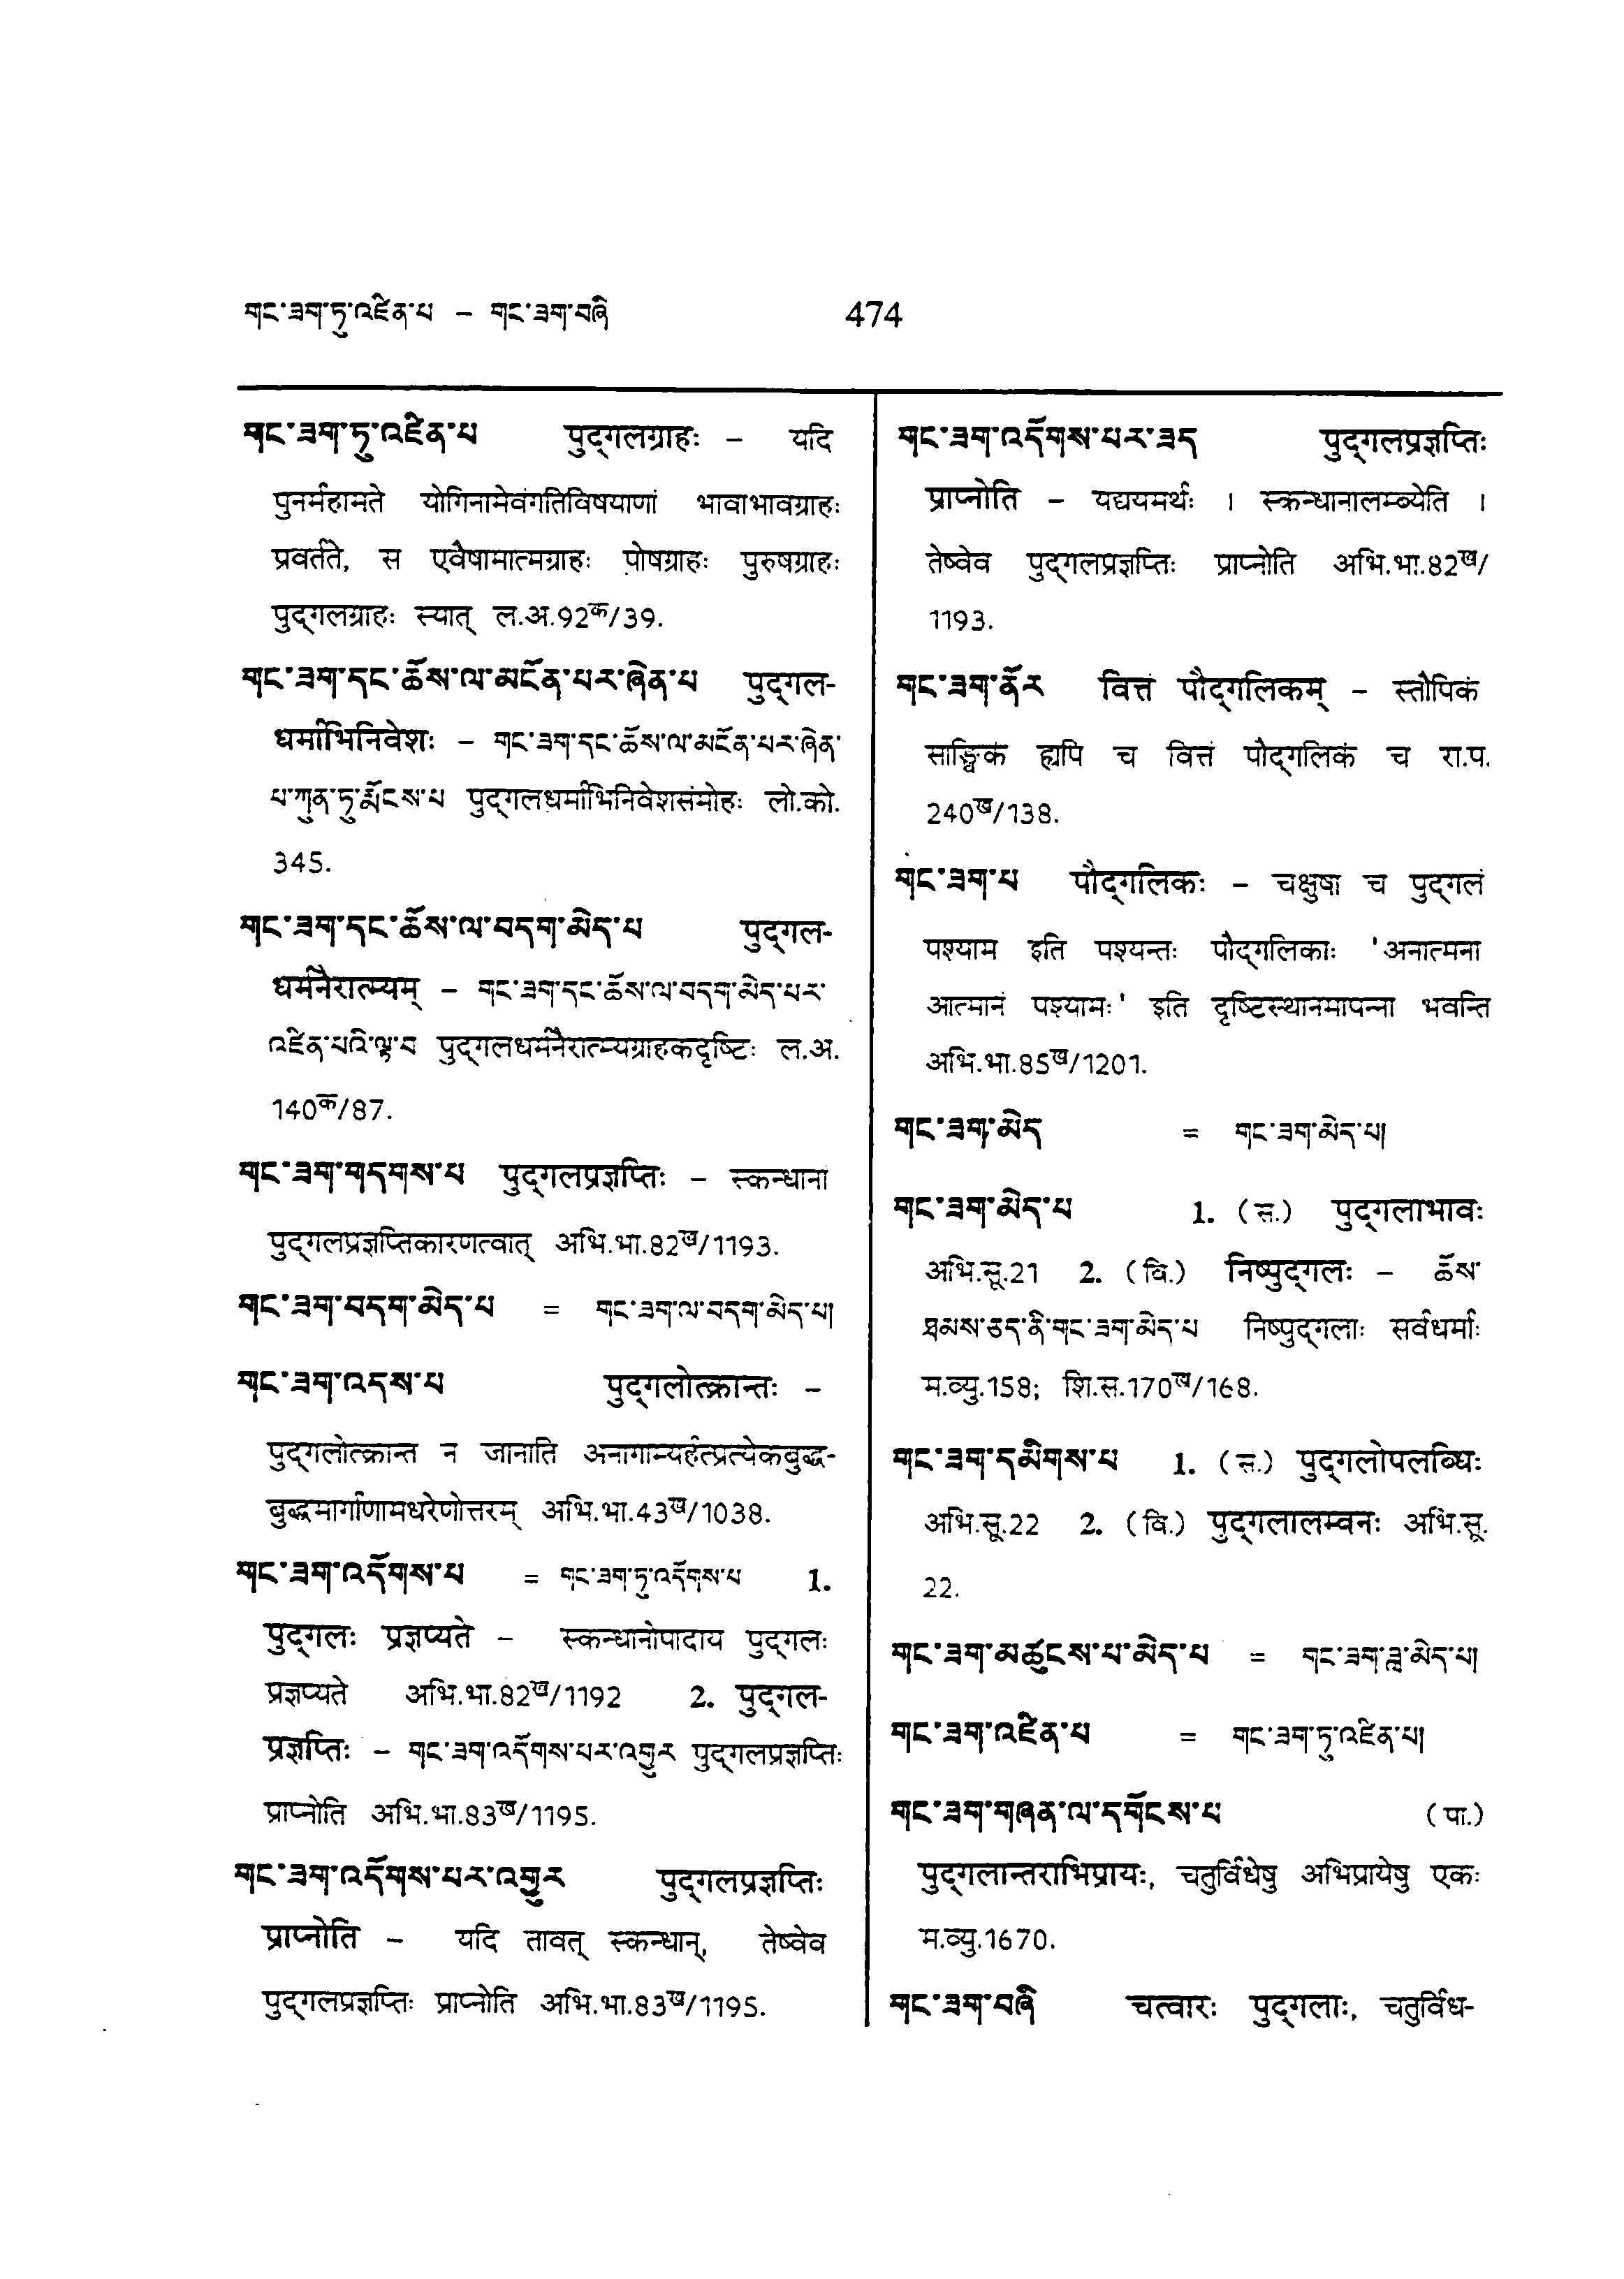 གང་ཟག་ཏུ་འཛིན་པ – གང་ཟག་བཞི 474
གང་ཟག་ཏུ་འཛིན་པ पुद्गलग्राहः – यदि
पुनर्महामते योगिनामेवंगतिविषयाणां भावाभावग्राहः
प्रवर्तते, स एवैषामात्मग्राहः पोषग्राहः पुरुषग्राहः
पुद्गलग्राहः स्यात् ल.अ.92क/39.
གང་ཟག་དང་ཆོས་ལ་མངོན་པར་ཞེན་པ पुद्गल-
धर्माभिनिवेशः – གང་ཟག་དང་ཆོས་ལ་མངོན་པར་ཞེན་
པ་ཀུན་ཏུ་རྨོངས་པ पुद्गलधर्माभिनिवेशसंमोहः लो.को.
345.
གང་ཟག་དང་ཆོས་ལ་བདག་མེད་པ पुद्गल-
धर्मनैरात्म्यम् – གང་ཟག་དང་ཆོས་ལ་བདག་མེད་པར་
འཛིན་པའི་ལྟ་བ पुद्गलधर्मनैरात्म्यग्राहकदृष्टिः ल.अ.
140क/87.
གང་ཟག་གདགས་པ पुद्गलप्रज्ञप्तिः – स्कन्धानां
पुद्गलप्रज्ञप्तिकारणत्वात् अभि.भा.82ख/1193.
གང་ཟག་བདག་མེད་པ = གང་ཟག་ལ་བདག་མེད་པ།
གང་ཟག་འདས་པ पुद्गलोत्क्रान्तः –
पुद्गलोत्क्रान्त न जानाति अनागाम्यर्हत्प्रत्येकबुद्ध-
बुद्धमार्गाणामधरेणोत्तरम् अभि.भा.43ख/1038.
གང་ཟག་འདོགས་པ = གང་ཟག་ཏུ་འདོགས་པ 1.
पुद्गलः प्रज्ञप्यते – स्कन्धानोपादाय पुद्गलः
प्रज्ञप्यते अभि.भा.82ख/1192 2. पुद्गल-
प्रज्ञप्तिः – གང་ཟག་འདོགས་པར་འགྱུར पुद्गलप्रज्ञप्तिः
प्राप्नोति अभि.भा.83ख/1195.
གང་ཟག་འདོགས་པར་འགྱུར पुद्गलप्रज्ञप्तिः
प्राप्नोति – यदि तावत् स्कन्धान्, तेष्वेव
पुद्गलप्रज्ञप्तिः प्राप्नोति अभि.भा.83ख/1195.
གང་ཟག་འདོགས་པར་ཟད पुद्गलप्रज्ञप्तिः
प्राप्नोति – यद्ययमर्थः । स्कन्धानालम्ब्येति ।
तेष्वेव पुद्गलप्रज्ञप्तिः प्राप्नोति अभि.भा.82ख/
1193.
གང་ཟག་ནོར वित्तं पौद्गलिकम् – स्तौपिकं
साङ्घिकं ह्यपि च वित्तं पौद्गलिकं च रा.प.
240ख/138.
གང་ཟག་པ पौद्गलिकः – चक्षुषा च पुद्गलं
पश्याम इति पश्यन्तः पौद्गलिकाः 'अनात्मना
आत्मानं पश्यामः' इति दृष्टिस्थानमापन्ना भवन्ति
अभि.भा.85ख/1201.
གང་ཟག་མེད = གང་ཟག་མེད་པ།
གང་ཟག་མེད་པ 1. (सं.) पुद्गलाभावः
अभि.सू.21 2. (वि.) निष्पुद्गलः – ཆོས་
ཐམས་ཅད་ནི་གང་ཟག་མེད་པ निष्पुद्गलाः सर्वधर्माः
म.व्यु.158; शि.स.170ख/168.
གང་ཟག་དམིགས་པ 1. (सं.) पुद्गलोपलब्धिः
अभि.सू.22 2. (वि.) पुद्गलालम्बनः अभि.सू.
22.
གང་ཟག་མཚུངས་པ་མེད་པ = གང་ཟག་ཟླ་མེད་པ།
གང་ཟག་འཛིན་པ = གང་ཟག་ཏུ་འཛིན་པ།
གང་ཟག་གཞན་ལ་དགོངས་པ (पा.)
पुद्गलान्तराभिप्रायः, चतुर्विधेषु अभिप्रायेषु एकः
म.व्यु.1670.
གང་ཟག་བཞི चत्वारः पुद्गलाः, चतुर्विध-